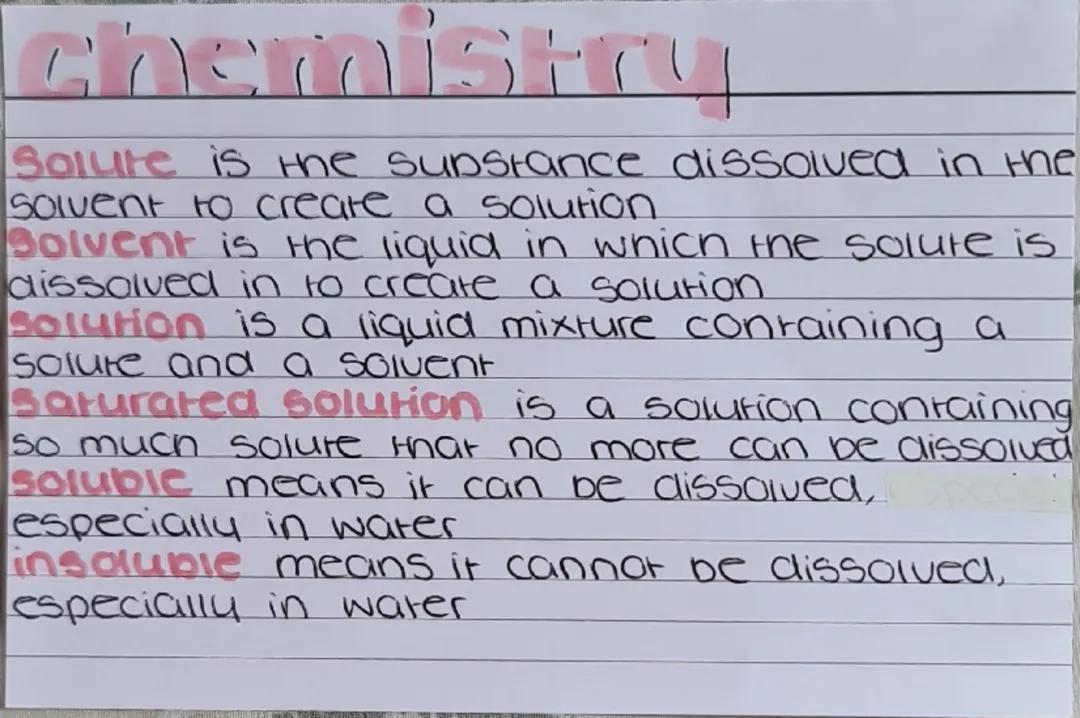 chemistry
Solute is the substance dissolved in the
solvent to create a solution
Solvent is the liquid in which the solute is
dissolved in to create a solution
Solution is a liquid mixture containing a
solute and a solvent
Saturated solution is a solution containing
so much solute that no more can be dissolved
soluble means it can be dissolved,
especially in water
insoluble means it cannot be dissolved,
especially in water